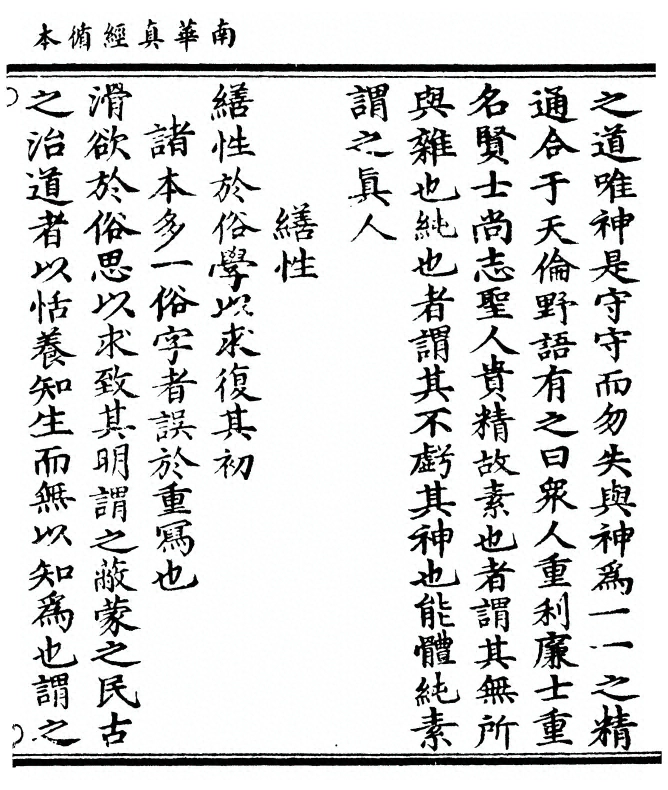 南華真經循本
之道唯神是守守而勿失與神爲一一之精
通合于天倫野語有之曰衆人重利廉士重
名賢士尚志聖人貴精故素也者謂其無所
與雜也純也者謂其不虧其神也能體純素
謂之眞人
繕性
繕性於俗學以求復其初
諸本多一俗字者誤於重寫也
滑欲於俗思以求致其明謂之蔽蒙之民古
之治道者以恬養知生而無以知爲也謂之